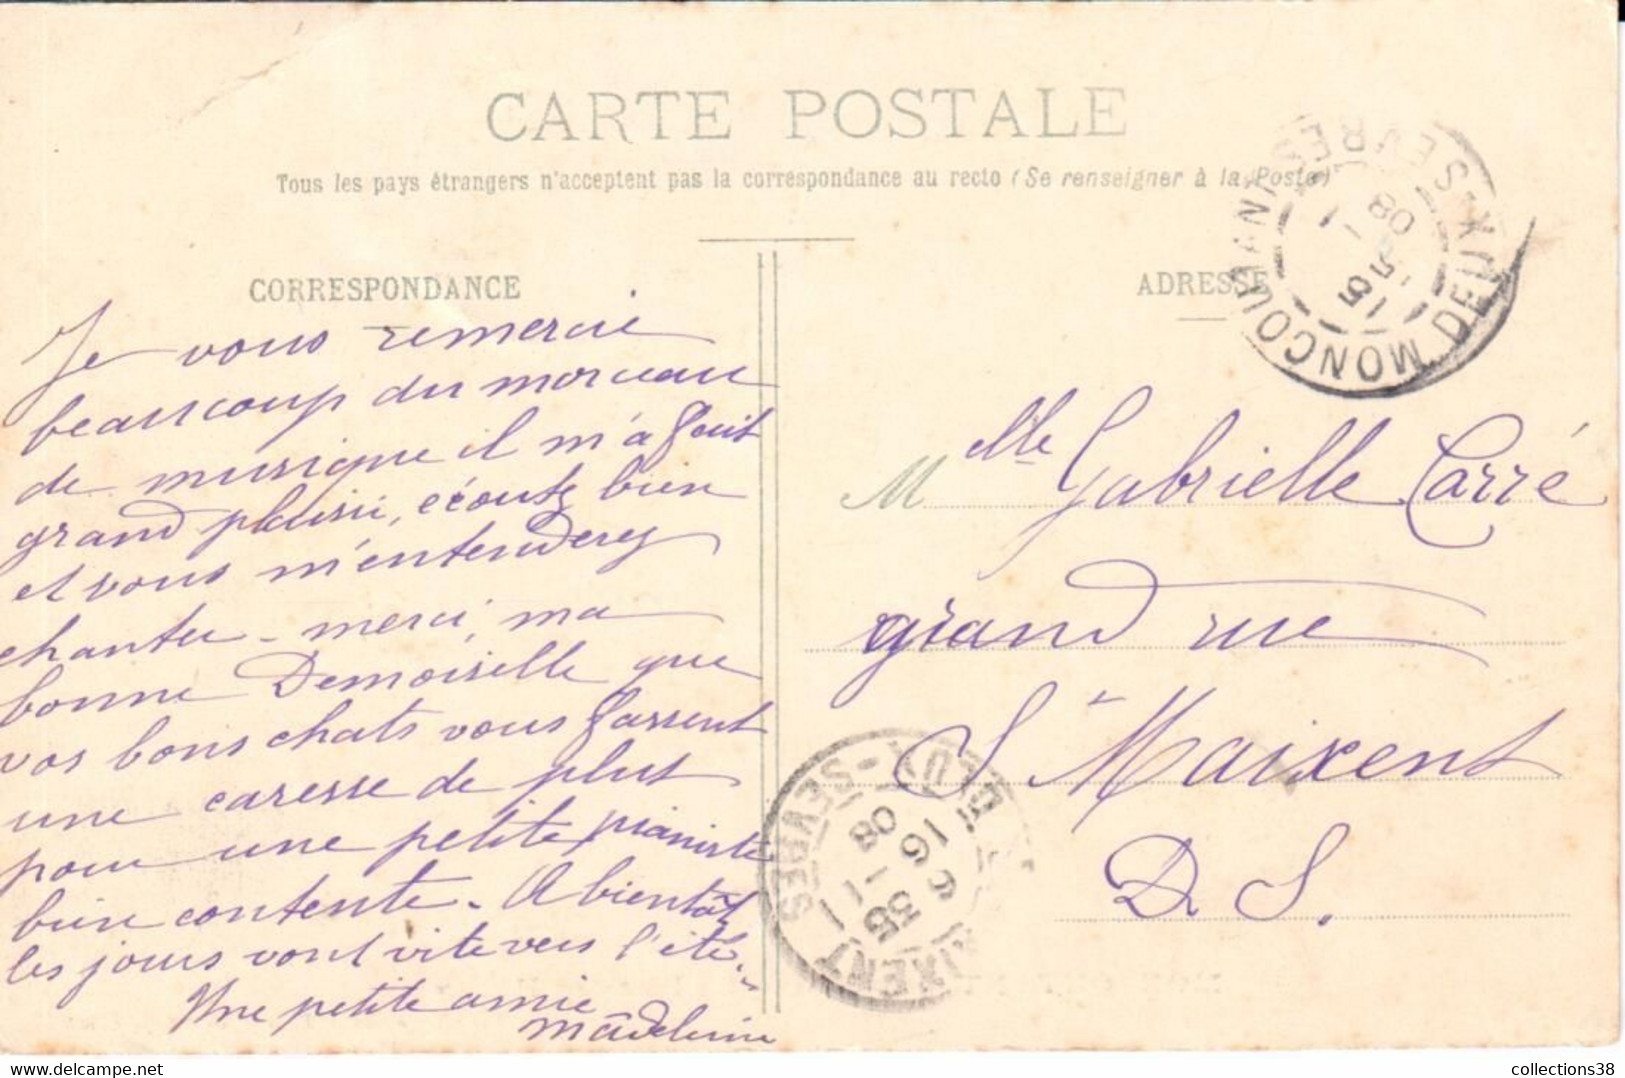 CARTE POSTALE
Tous les pays étrangers n'acceptent pas la correspondance au recto (Se renseigner à la Poste)
CORRESPONDANCE
Je vous remercie
beaucoup du morceau
de musique il m'a fait
grand plaisir, écoutez bien
et vous m'entenderez
chanter - merci, ma
bonne Demoiselle que
vos bons chats vous fassent
une caresse de plus
pour une petite pianiste
bien contente. A bientôt
les jours vont vite vers l'été.
Une petite amie
Madeleine
ADRESSE
MONCOUTANT DEUX-SEVRES
08
Mlle Gabrielle Carré
grand rue
St Maixent
D. S.
MAIXENT
SEVRES
16 35
6 -1
08
collections38